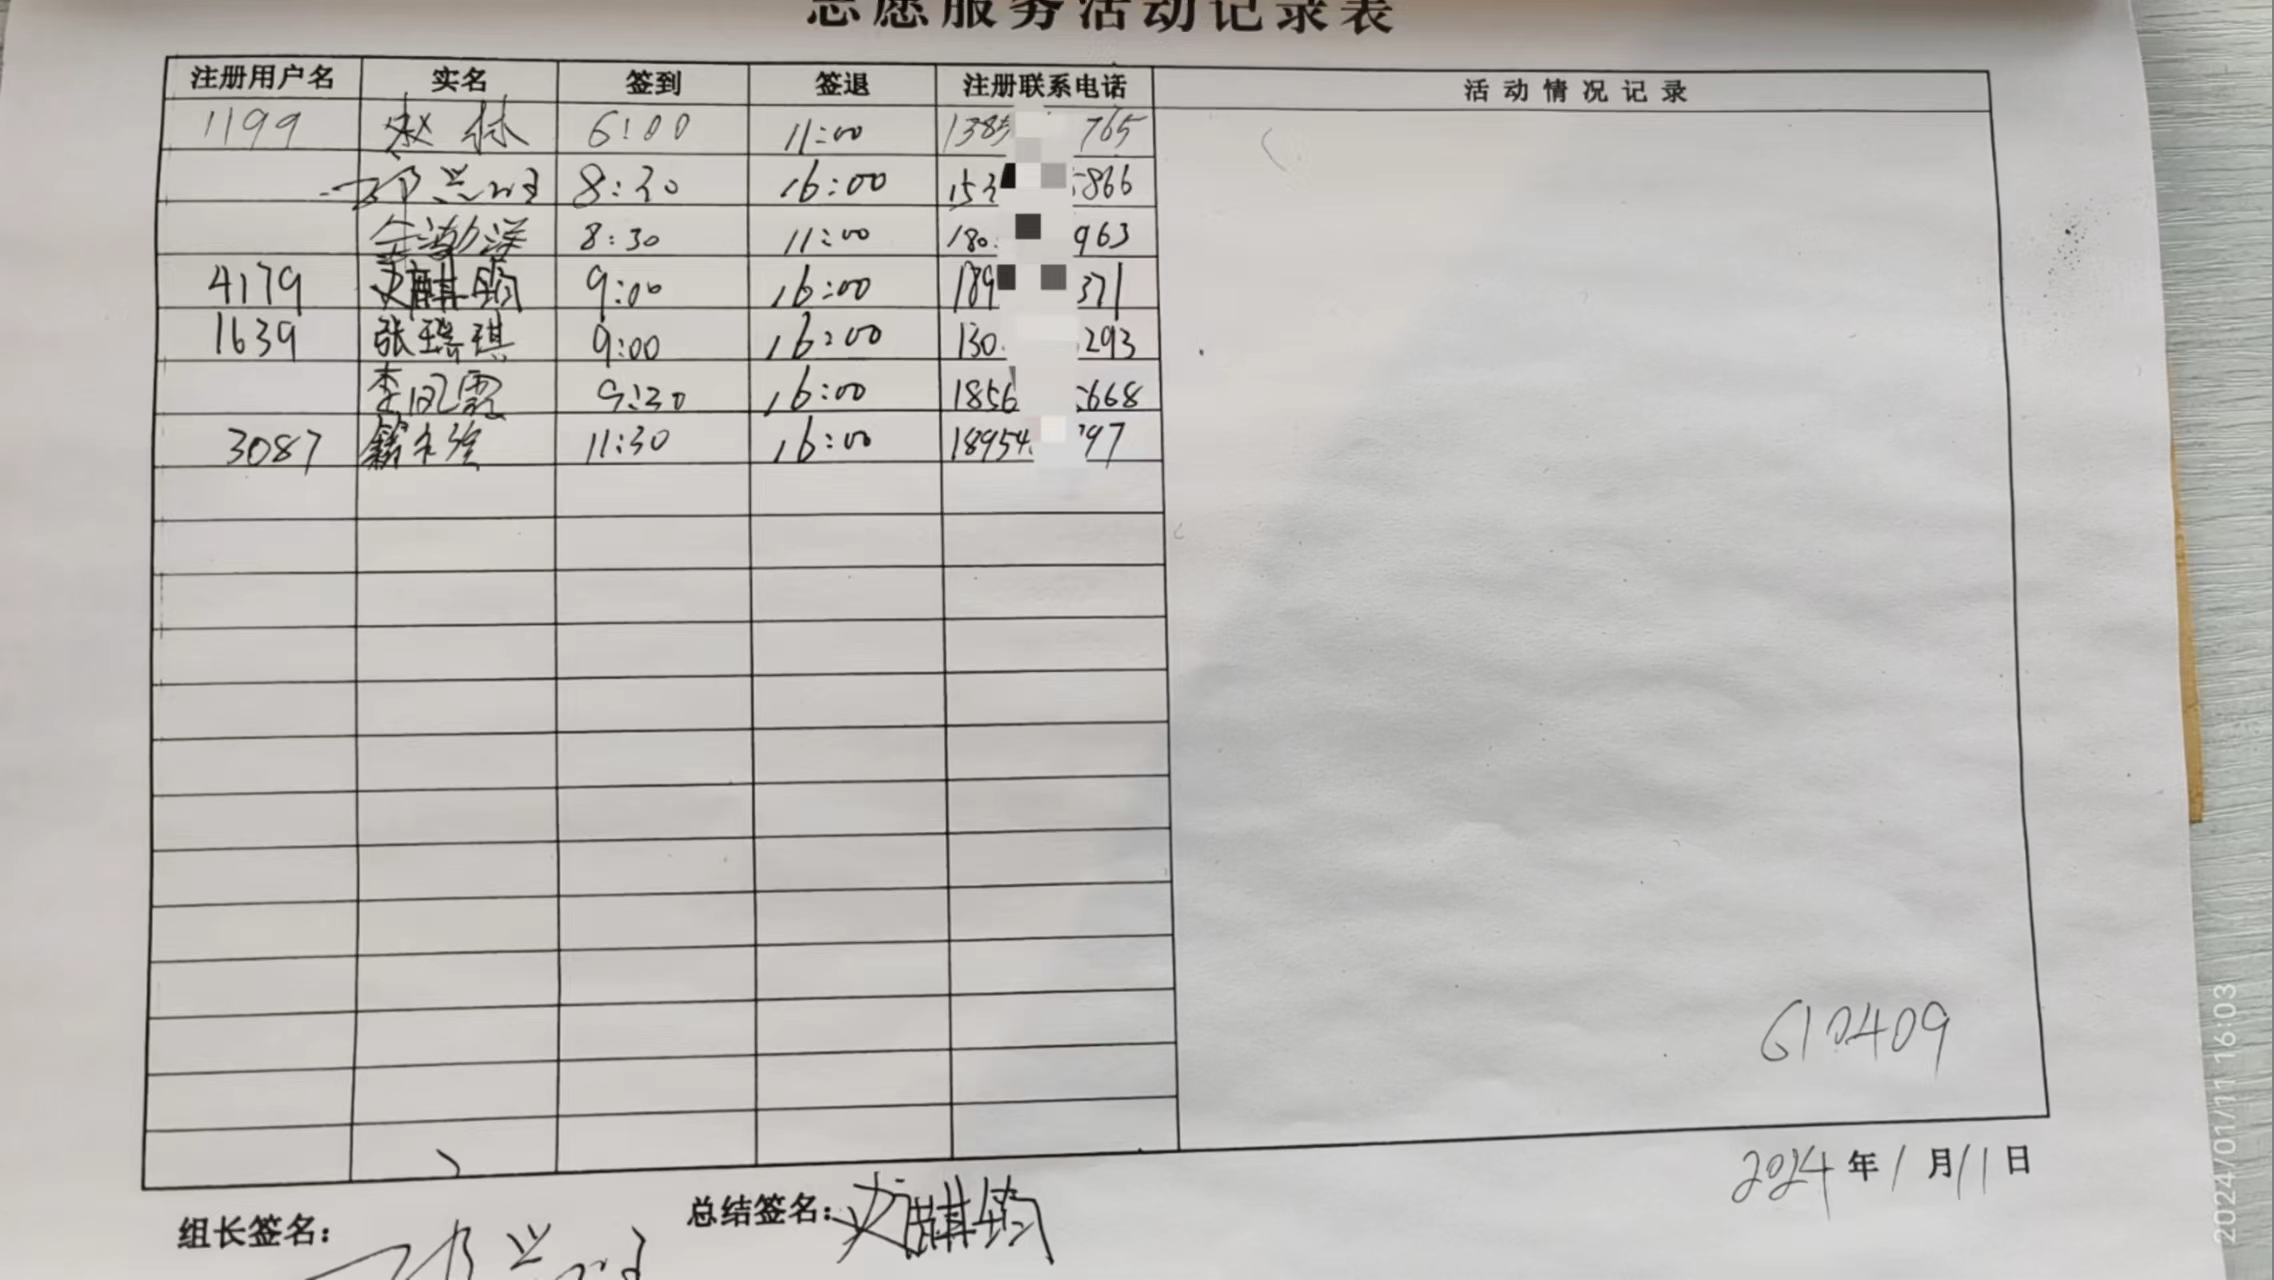 志愿服务活动记录表
注册用户名 实名 签到 签退 注册联系电话 活动情况记录
1199 赵林 6:00 11:00 1385 765
8:30 16:00 153 866
8:30 11:00 180 963
4179 9:00 16:00 189 371
1639 张瑞琪 9:00 16:00 130 293
李凤霞 9:30 16:00 1856 668
3087 11:30 16:00 18954 97
610409
2024年1月11日
组长签名:
总结签名:
2024/01/11 16:03